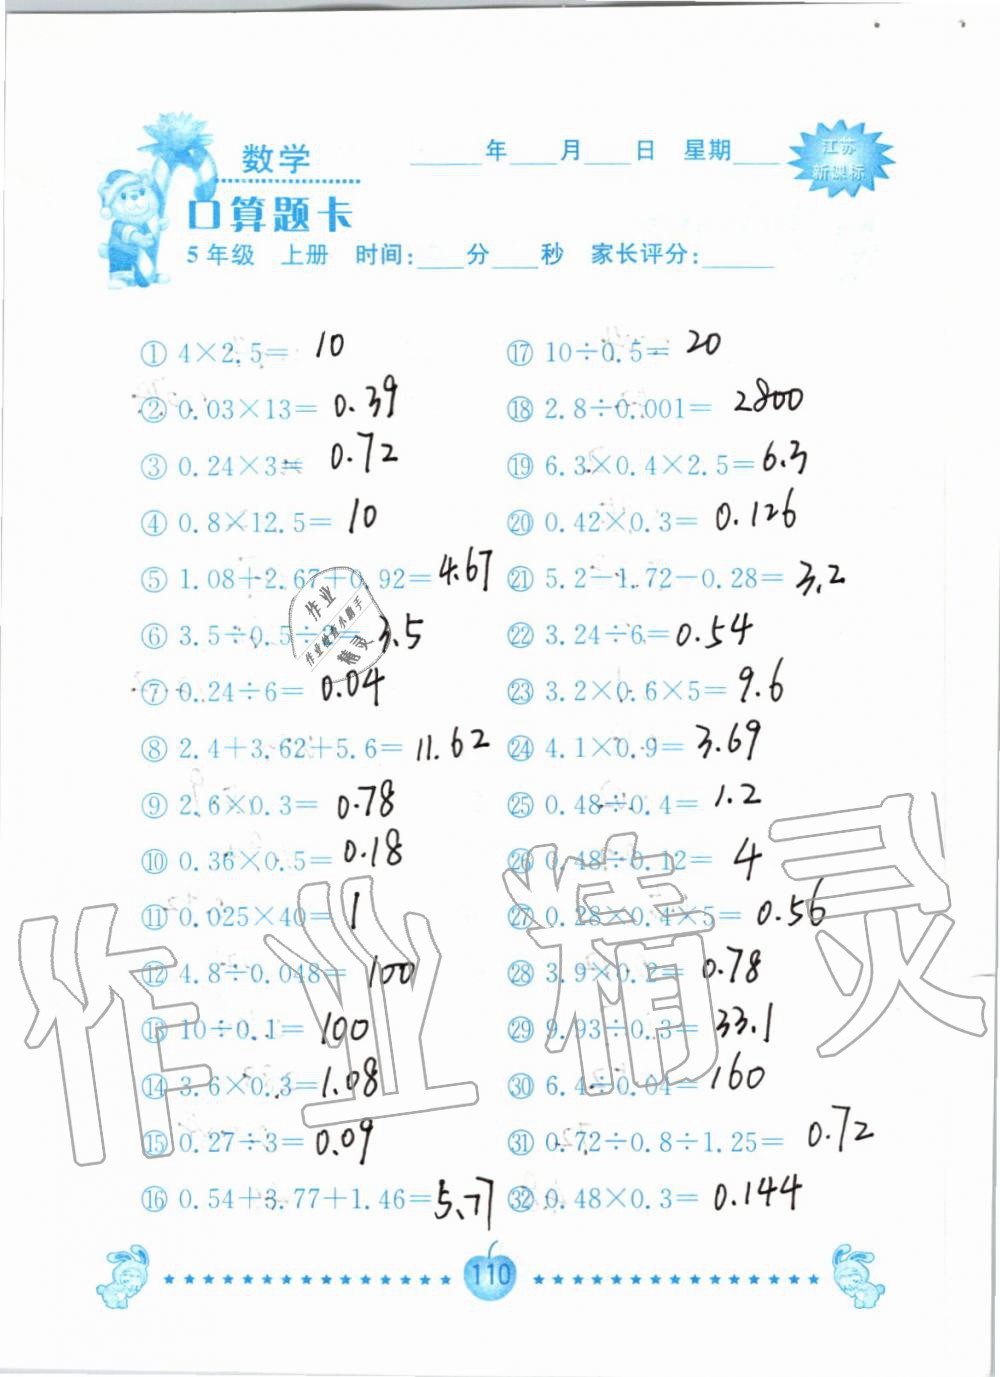 数学 ____年____月____日 星期____
江苏
新课标
口算题卡
5年级 上册 时间:____分____秒 家长评分:______
① 4×2.5= 10
② 0.03×13= 0.39
③ 0.24×3= 0.72
④ 0.8×12.5= 10
⑤ 1.08+2.67+0.92= 4.67
⑥ 3.5÷0.5÷2= 3.5
⑦ 0.24÷6= 0.04
⑧ 2.4+3.62+5.6= 11.62
⑨ 2.6×0.3= 0.78
⑩ 0.36×0.5= 0.18
⑪ 0.025×40= 1
⑫ 4.8÷0.048= 100
⑬ 10÷0.1= 100
⑭ 3.6×0.3= 1.08
⑮ 0.27÷3= 0.09
⑯ 0.54+3.77+1.46= 5.77
⑰ 10÷0.5= 20
⑱ 2.8÷0.001= 2800
⑲ 6.3×0.4×2.5= 6.3
⑳ 0.42×0.3= 0.126
㉑ 5.2-1.72-0.28= 3.2
㉒ 3.24÷6= 0.54
㉓ 3.2×0.6×5= 9.6
㉔ 4.1×0.9= 3.69
㉕ 0.48÷0.4= 1.2
㉖ 0.48÷0.12= 4
㉗ 0.28×0.4×5= 0.56
㉘ 3.9×0.2= 0.78
㉙ 9.93÷0.3= 33.1
㉚ 6.4÷0.04= 160
㉛ 0.72÷0.8÷1.25= 0.72
㉜ 0.48×0.3= 0.144
作业
作业检查小助手
精灵
作业精灵
110